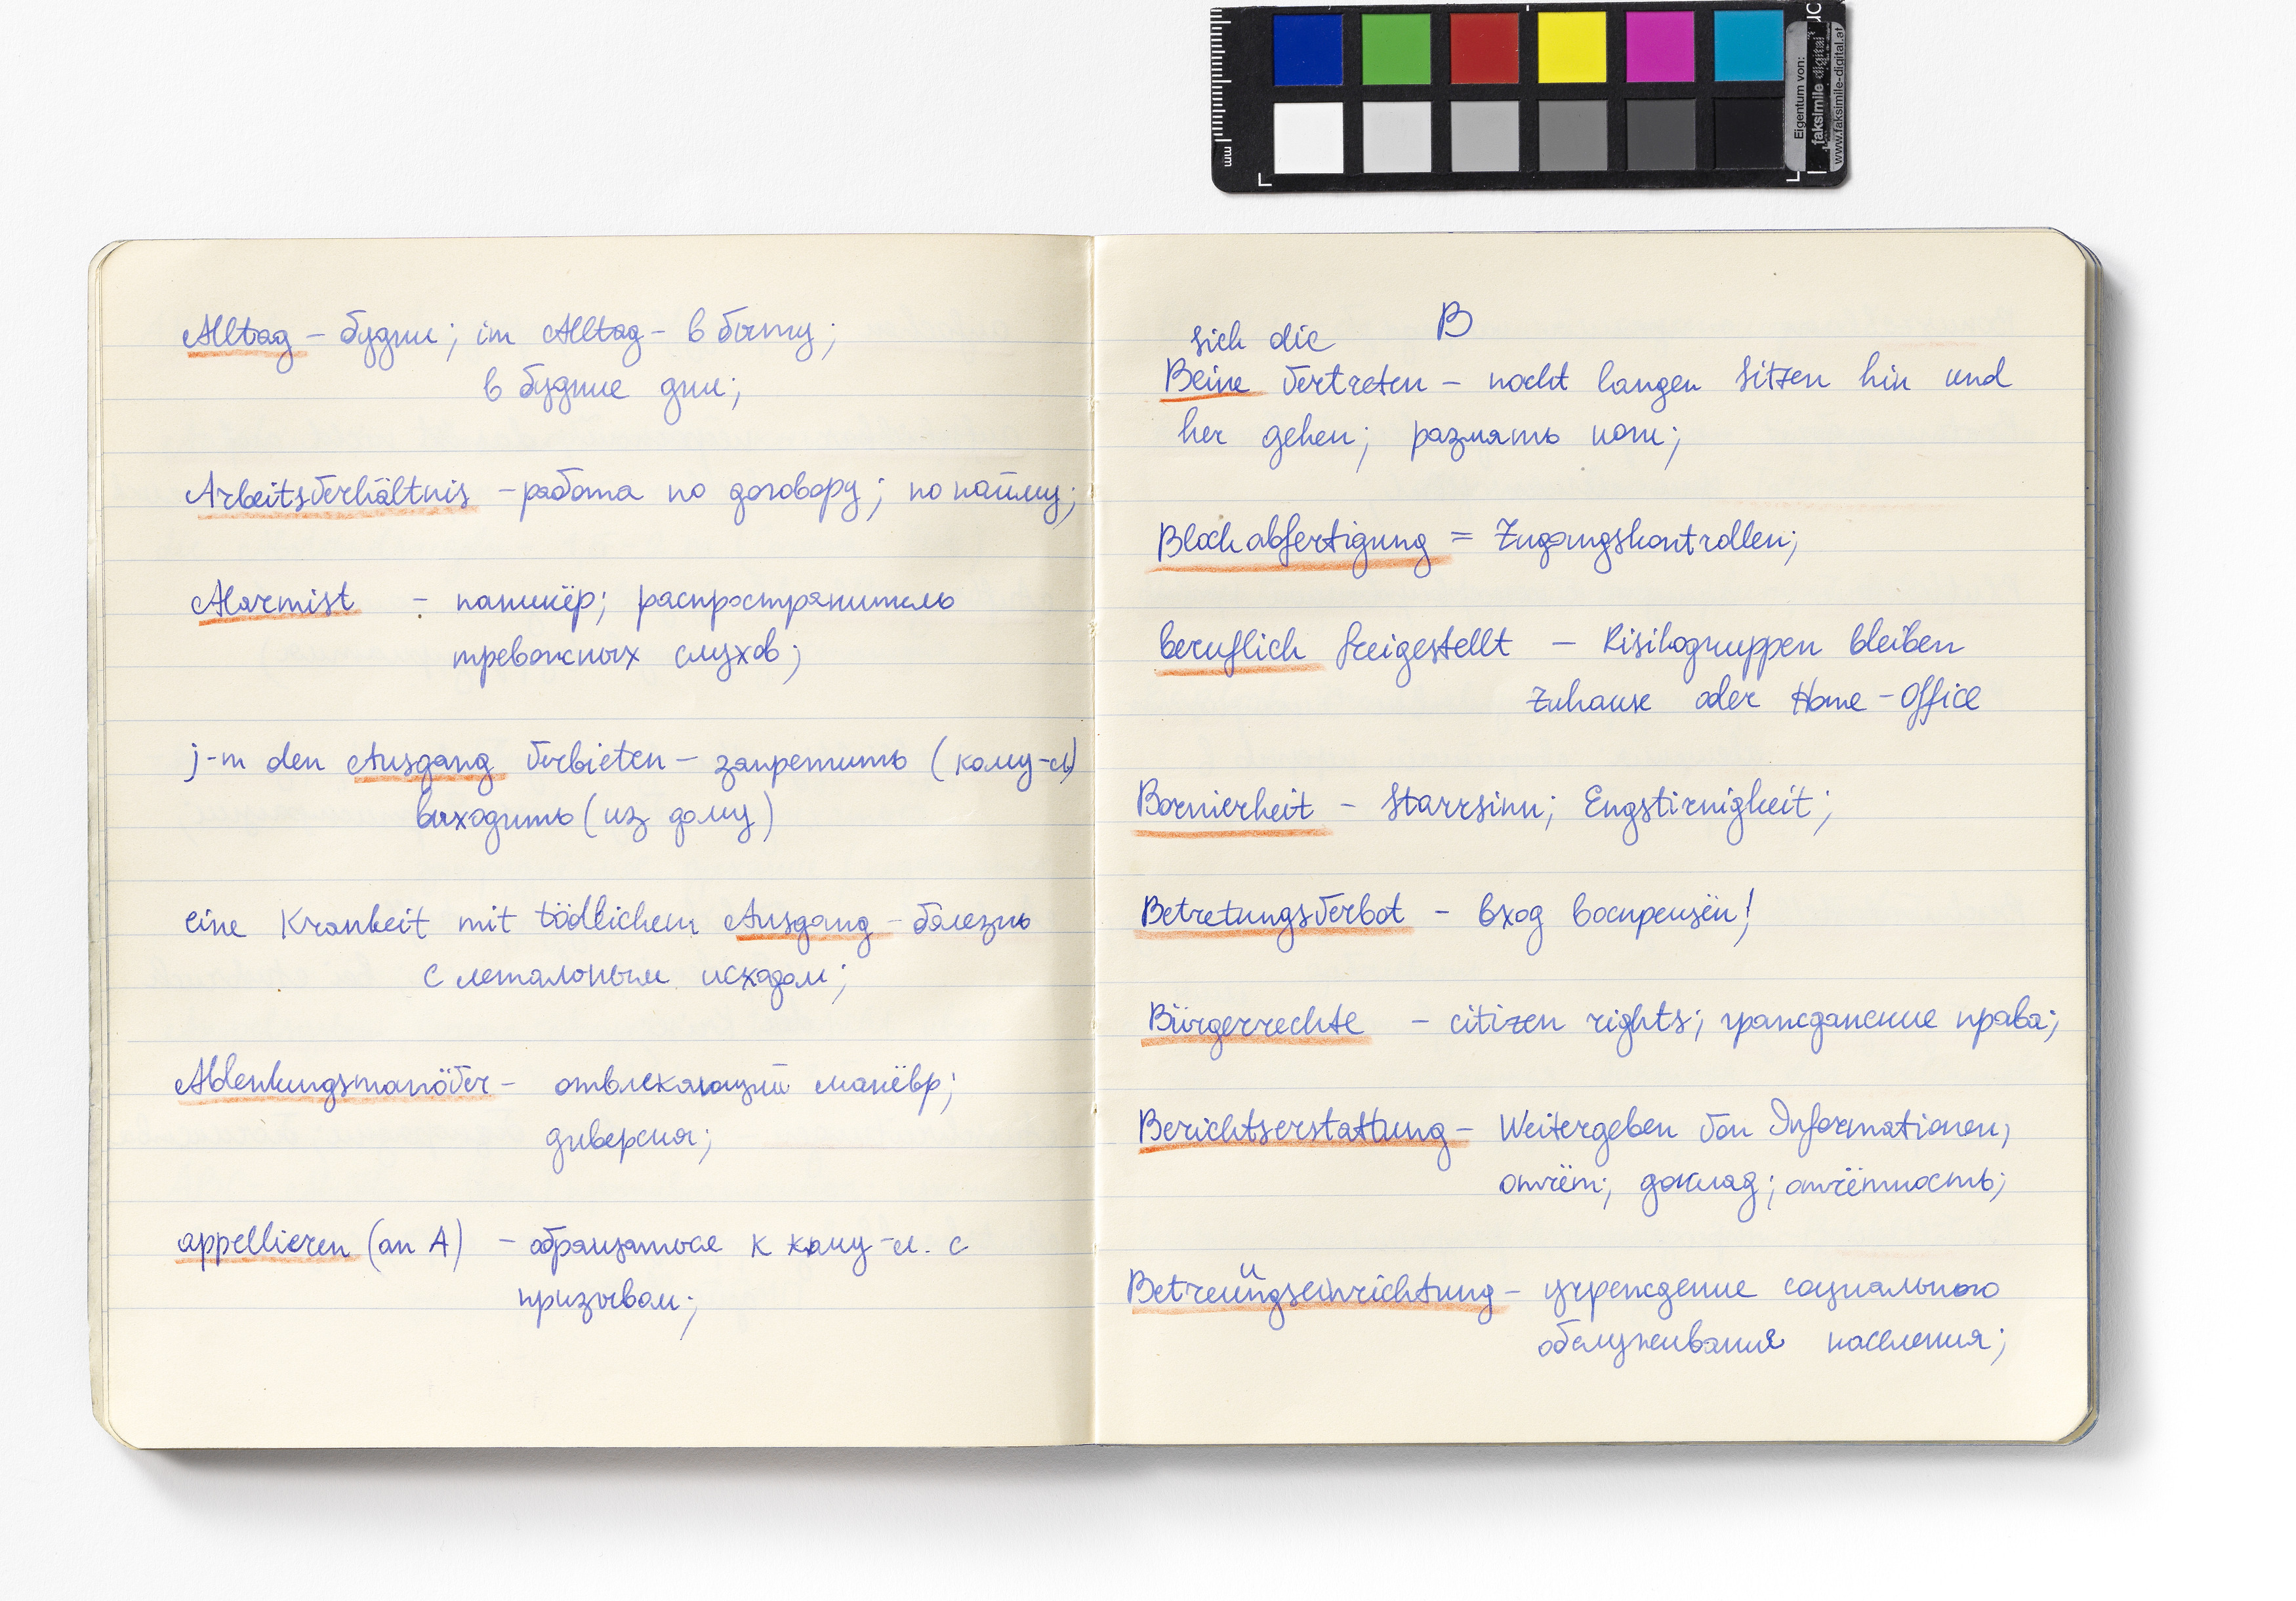 Alltag – будни; im Alltag – в быту;
в будние дни;
Arbeitsverhältnis – работа по договору; по найму;
Alarmist – паникёр; распространитель
тревожных слухов;
j-m den Ausgang verbieten – запретить (кому-л)
выходить (из дому)
eine Krankeit mit tödlichem Ausgang – болезнь
с летальным исходом;
Ablenkungsmanöver – отвлекающий манёвр;
диверсия;
appellieren (an A) – обращаться к кому-л. с
призывом;
B
sich die
Beine vertreten – nacht langen Sitzen hin und
her gehen; размять ноги;
Blockabfertigung = Zugangskontrollen;
beruflich freigestellt – Risikogruppen bleiben
Zuhause oder Home-Office
Bornierheit – Starrsinn; Engstirnigkeit;
Betretungsverbot – вход воспрещён!
Bürgerrechte – citizen rights; гражданские права;
Berichtserstattung – Weitergeben von Informationen,
отчёт; доклад; отчётность;
Betreuungseinrichtung – учреждение социального
обслуживания населения;
mm
Eigentum von:
faksimile digital
www.faksimile-digital.at